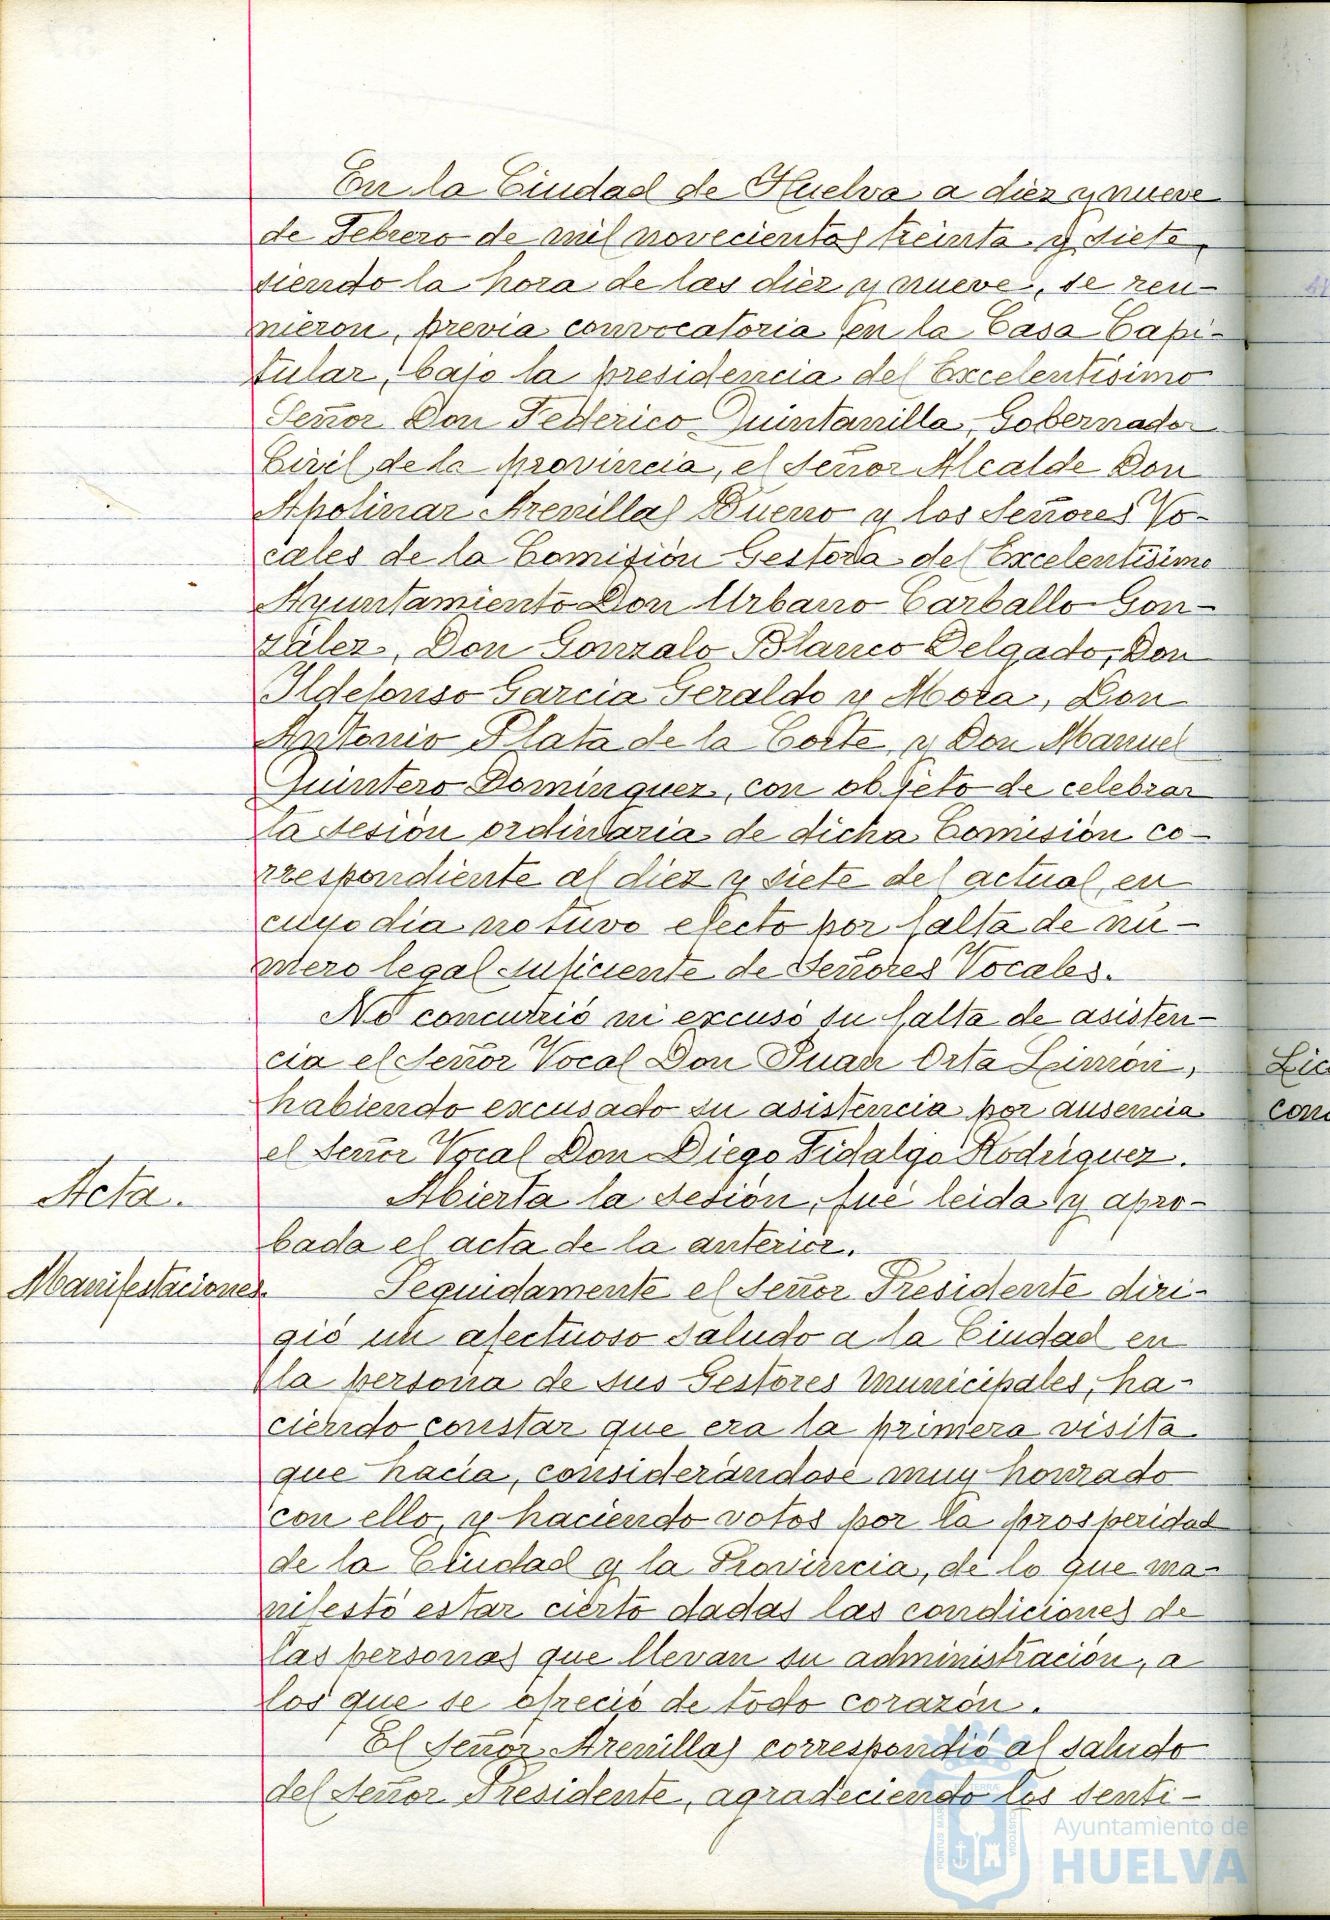 En la Ciudad de Huelva a diez y nueve
de Febrero de mil novecientos treinta y siete,
siendo la hora de las diez y nueve, se reu-
nieron, previa convocatoria en la Casa Capi-
tular, bajo la presidencia del Excelentísimo
Señor Don Federico Quintanilla, Gobernador
Civil de la provincia, el señor Alcalde Don
Apolinar Arenillas Bueno y los Señores Vo-
cales de la Comisión Gestora del Excelentísimo
Ayuntamiento Don Urbano Carballo Gon-
zález, Don Gonzalo Blanco Delgado, Don
Ildefonso García Geraldo y Mora, Don
Antonio Plata de la Corte, y Don Manuel
Quintero Domínguez, con objeto de celebrar
la sesión ordinaria de dicha Comisión co-
rrespondiente al diez y siete del actual, en
cuyo día no tuvo efecto por falta de nú-
mero legal suficiente de Señores Vocales.
No concurrió ni excusó su falta de asisten-
cia el Señor Vocal Don Juan Orta Limón,
habiendo excusado su asistencia por ausencia
el Señor Vocal Don Diego Fidalgo Rodríguez.
Acta.
Abierta la sesión, fué leida y apro-
bada el acta de la anterior.
Manifestaciones.
Seguidamente el Señor Presidente diri-
gió un afectuoso saludo a la Ciudad en
la persona de sus Gestores Municipales, ha-
ciendo constar que era la primera visita
que hacía, considerándose muy honrado
con ello, y haciendo votos por la prosperidad
de la Ciudad y la Provincia, de lo que ma-
nifestó estar cierto dadas las condiciones de
las personas que llevan su administración, a
los que se ofreció de todo corazón.
El Señor Arenillas correspondió al saludo
del Señor Presidente, agradeciendo los senti-
Ayuntamiento de
HUELVA